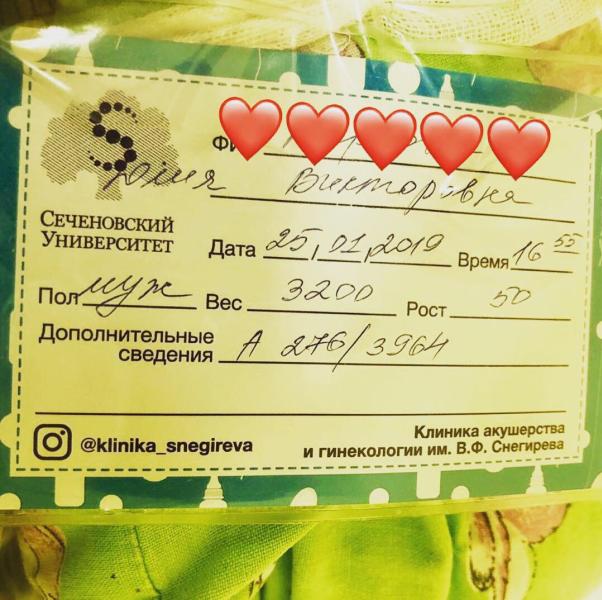 ФИ
Юлия Викторовна
СЕЧЕНОВСКИЙ
УНИВЕРСИТЕТ
Дата 25,01,2019 Время 16 55
Пол муж Вес 3200 Рост 50
Дополнительные
сведения А 276/3964
@klinika_snegireva
Клиника акушерства
и гинекологии им. В.Ф. Снегирева